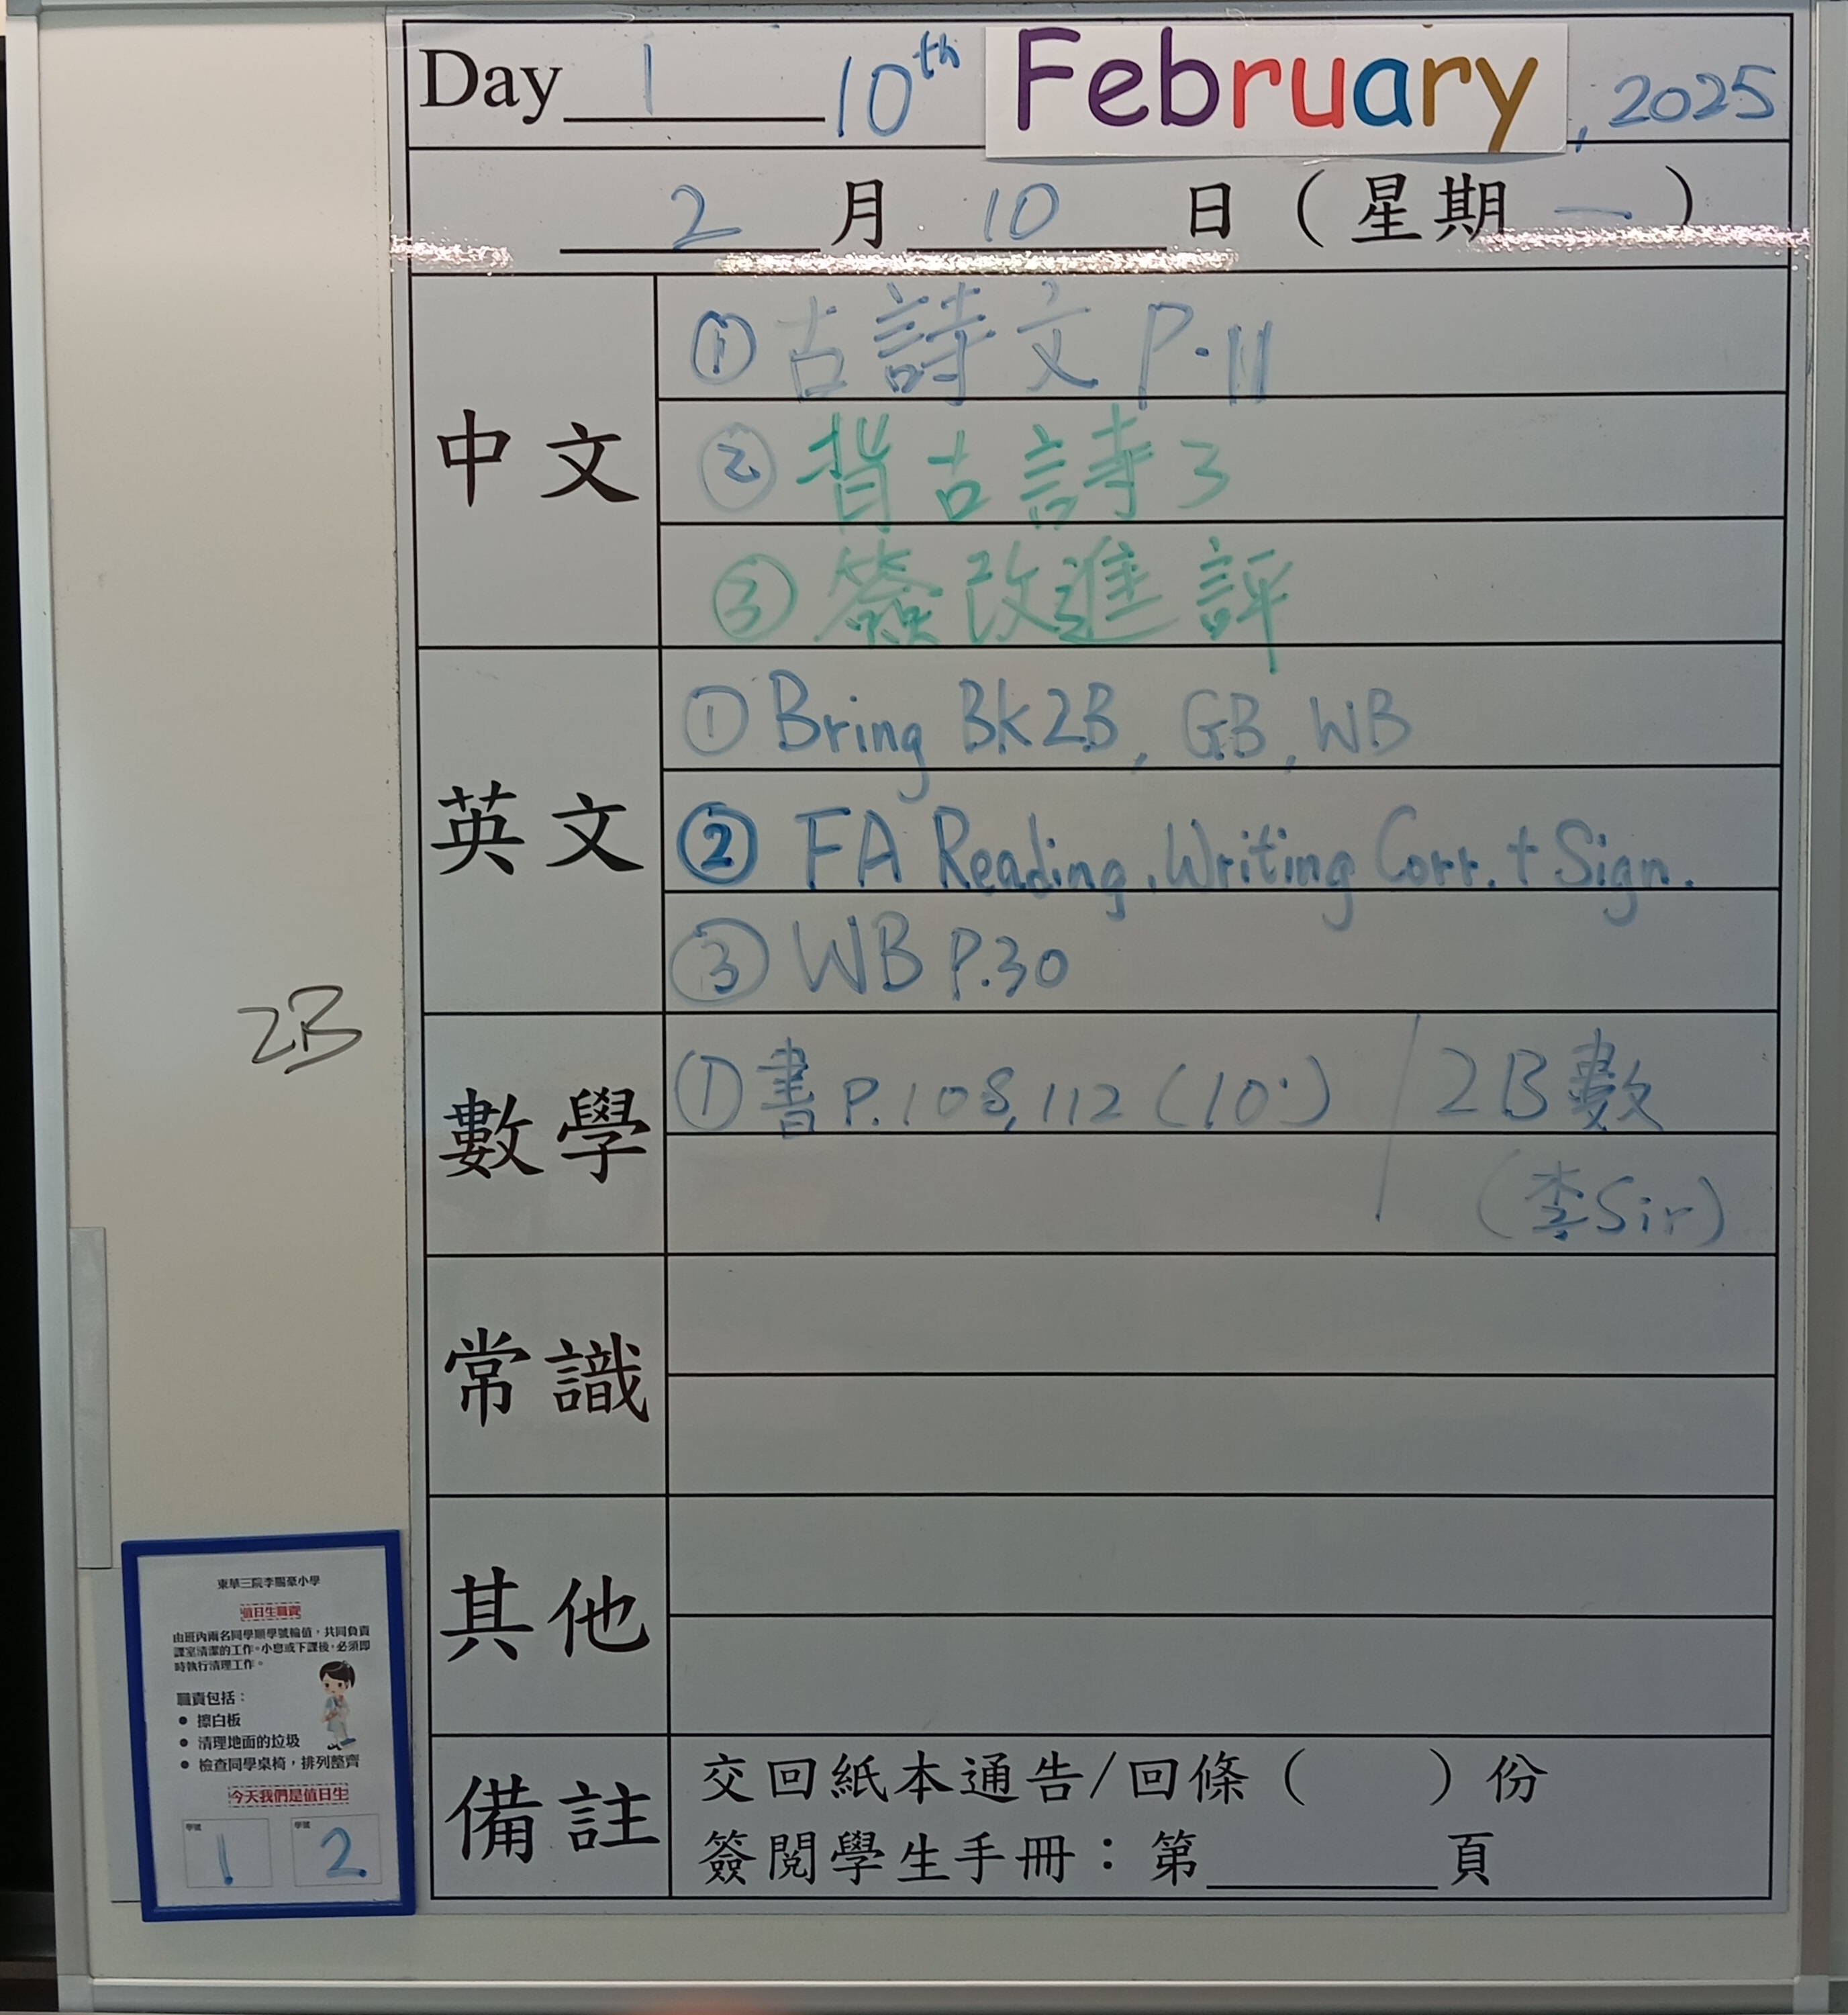 Day 1 10th February, 2025
2 月 10 日 (星期 一 )
中文
① 古詩文 P.11
② 背古詩3
③ 簽改進評
英文
① Bring BK2B, GB, WB
② FA Reading, Writing Corr. + Sign.
③ WB P.30
數學
① 書 P.108, 112 (10') / 2B 數
(李Sir)
常識
其他
備註
交回紙本通告/回條 ( ) 份
簽閱學生手冊：第 頁
2B
東華三院李賜豪小學
值日生職責
由班內兩名同學順學號輪值，共同負責
課室清潔的工作。小息或下課後，必須即
時執行清理工作。
職責包括：
● 擦白板
● 清理地面的垃圾
● 檢查同學桌椅，排列整齊
今天我們是值日生
學號 學號
1 2